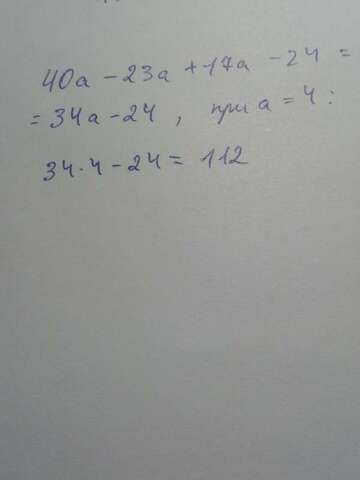 40a - 23a + 17a - 24 =
= 34a - 24 , при a = 4 :
34 · 4 - 24 = 112